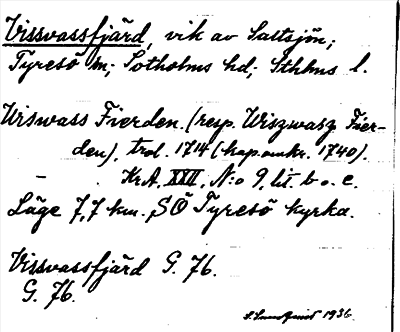 Vissvassfjärd, vik av Saltsjön;
Tyresö sn; Sotholms hd; Sthlms l.
Wiswass Fierden (resp. Wiszwasz Fier-
den), trol. 1714 (kap. omkr. 1740).
Kr.A. XXII, N:o 9, lit. b o. c.
Läge 7,7 km. SÖ Tyresö kyrka.
Vissvassfjärd G. 76.
G. 76.
1936